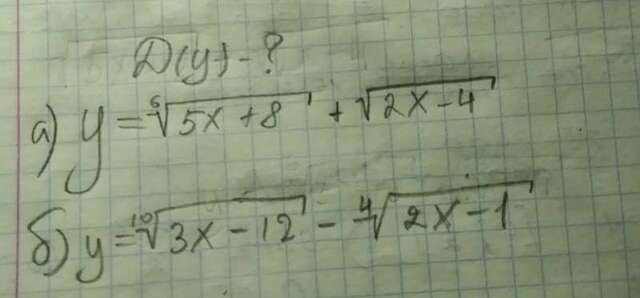 D(y) - ?
а) y = ⁶√(5x + 8) + √(2x - 4)
б) y = ¹⁰√(3x - 12) - ⁴√(2x - 1)